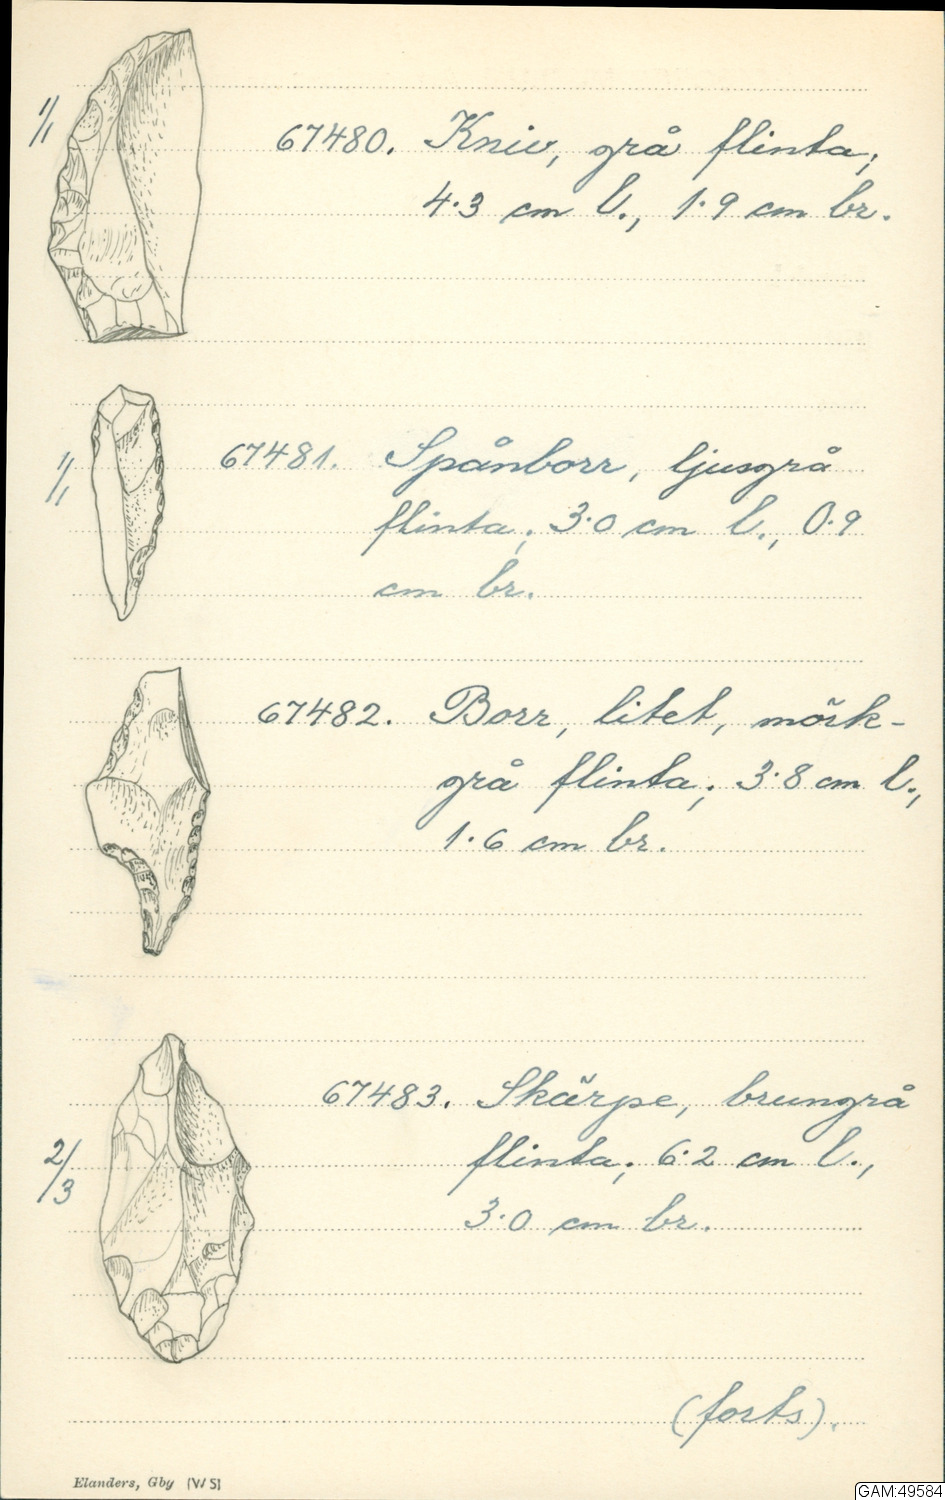 1/1
67480. Kniv, grå flinta;
4.3 cm l., 1.9 cm br.
1/1
67481. Spånborr, ljusgrå
flinta; 3.0 cm l., 0.9
cm br.
67482. Borr, litet, mörk-
grå flinta; 3.8 cm l.,
1.6 cm br.
2/3
67483. Skärpe, brungrå
flinta; 6.2 cm l.,
3.0 cm br.
(forts).
Elanders, Gbg (V/5)
GAM:49584